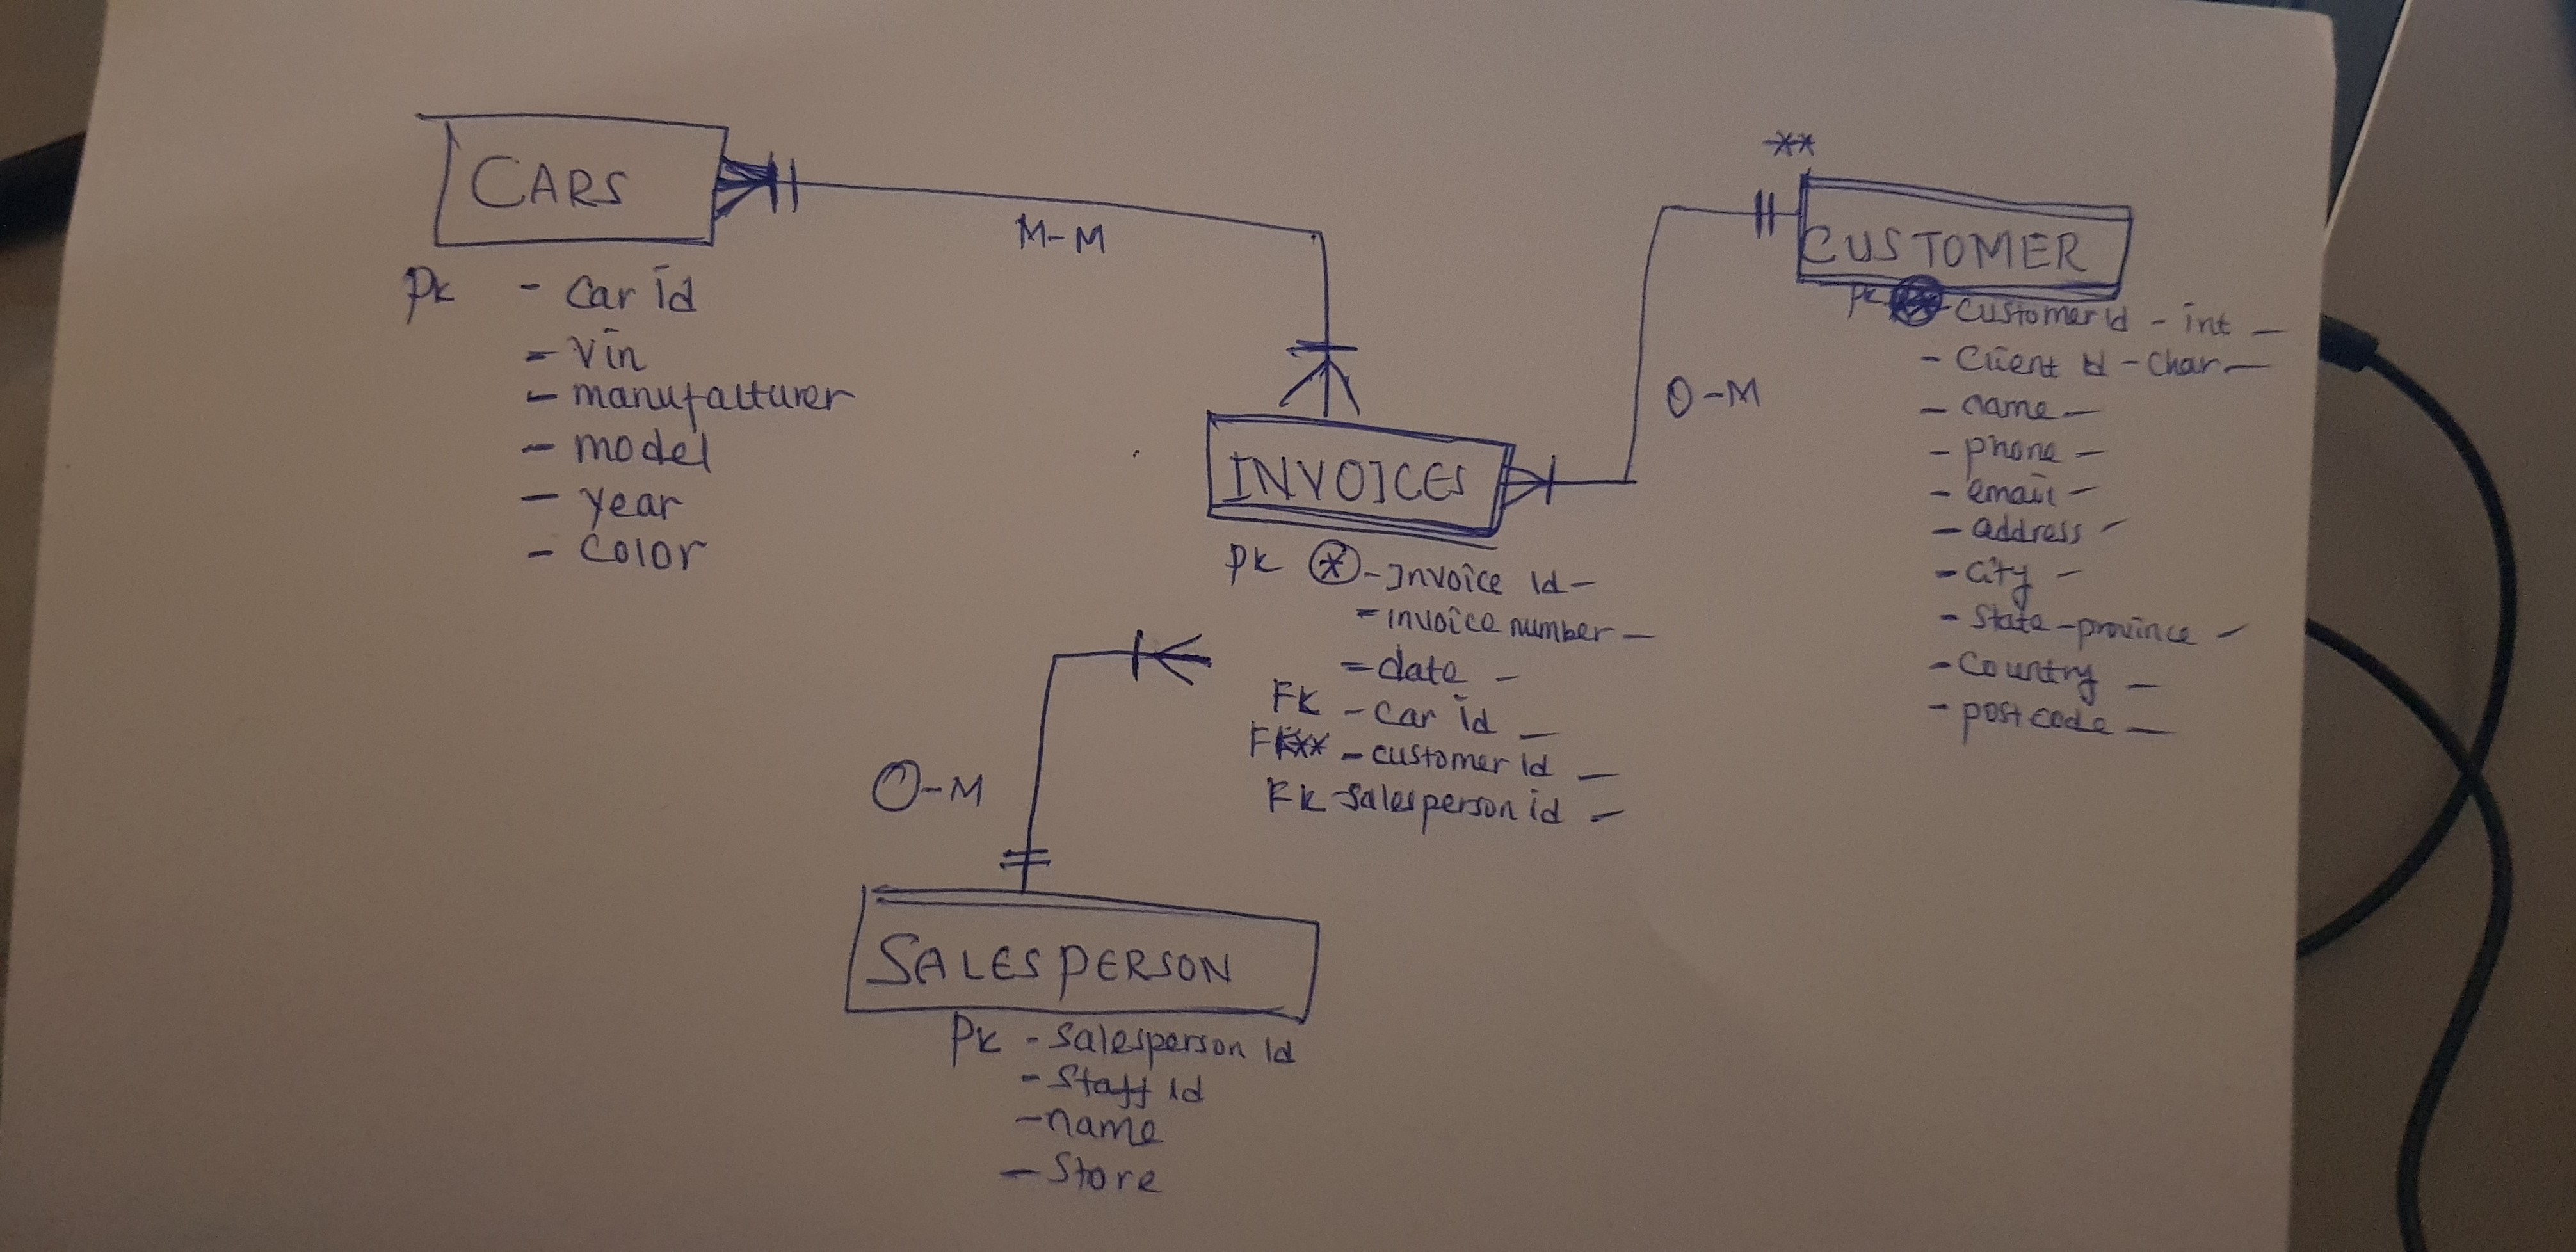 CARS
M-M
PK - Car id
- Vin
- manufacturer
- model
- year
- Color
**
CUSTOMER
PK - Customer id - int -
- Client Id - Char -
- name -
- phone -
- email -
- address -
- City -
- State-province -
- Country -
- postcode -
O-M
INVOICES
PK * - Invoice id -
- invoice number -
- date -
FK - Car id -
FK** - customer id -
FK - Salesperson id -
O-M
SALESPERSON
PK - Salesperson id
- Staff id
- name
- Store